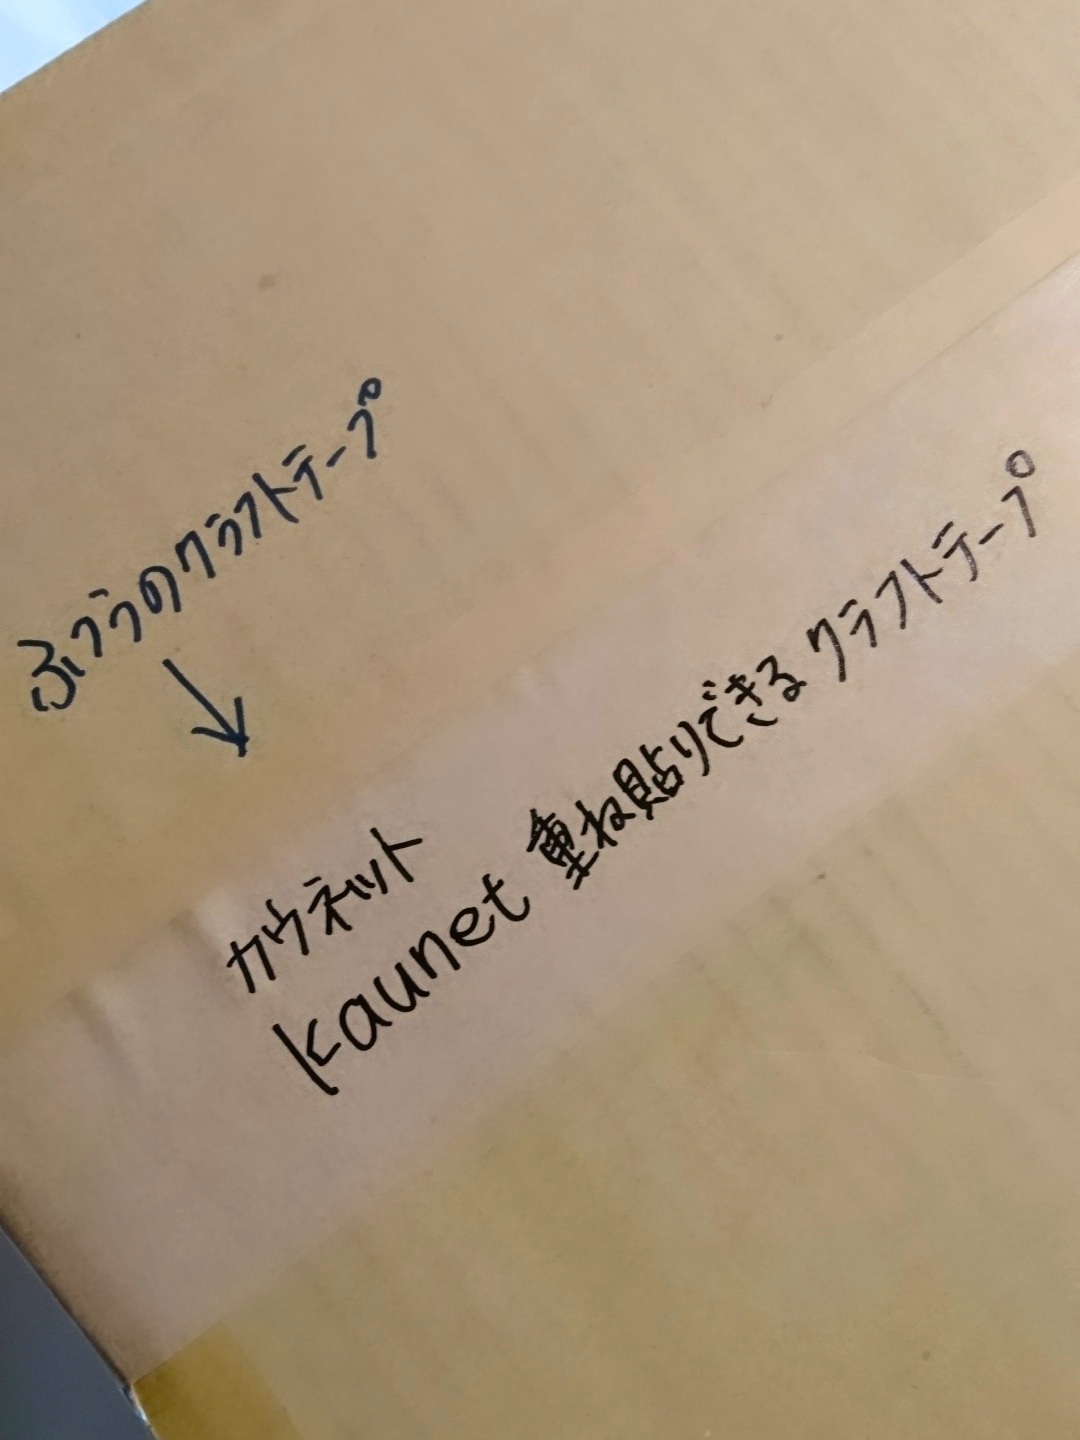 ふつうのクラフトテープ
↓
カウネット
kaunet 重ね貼りできるクラフトテープ